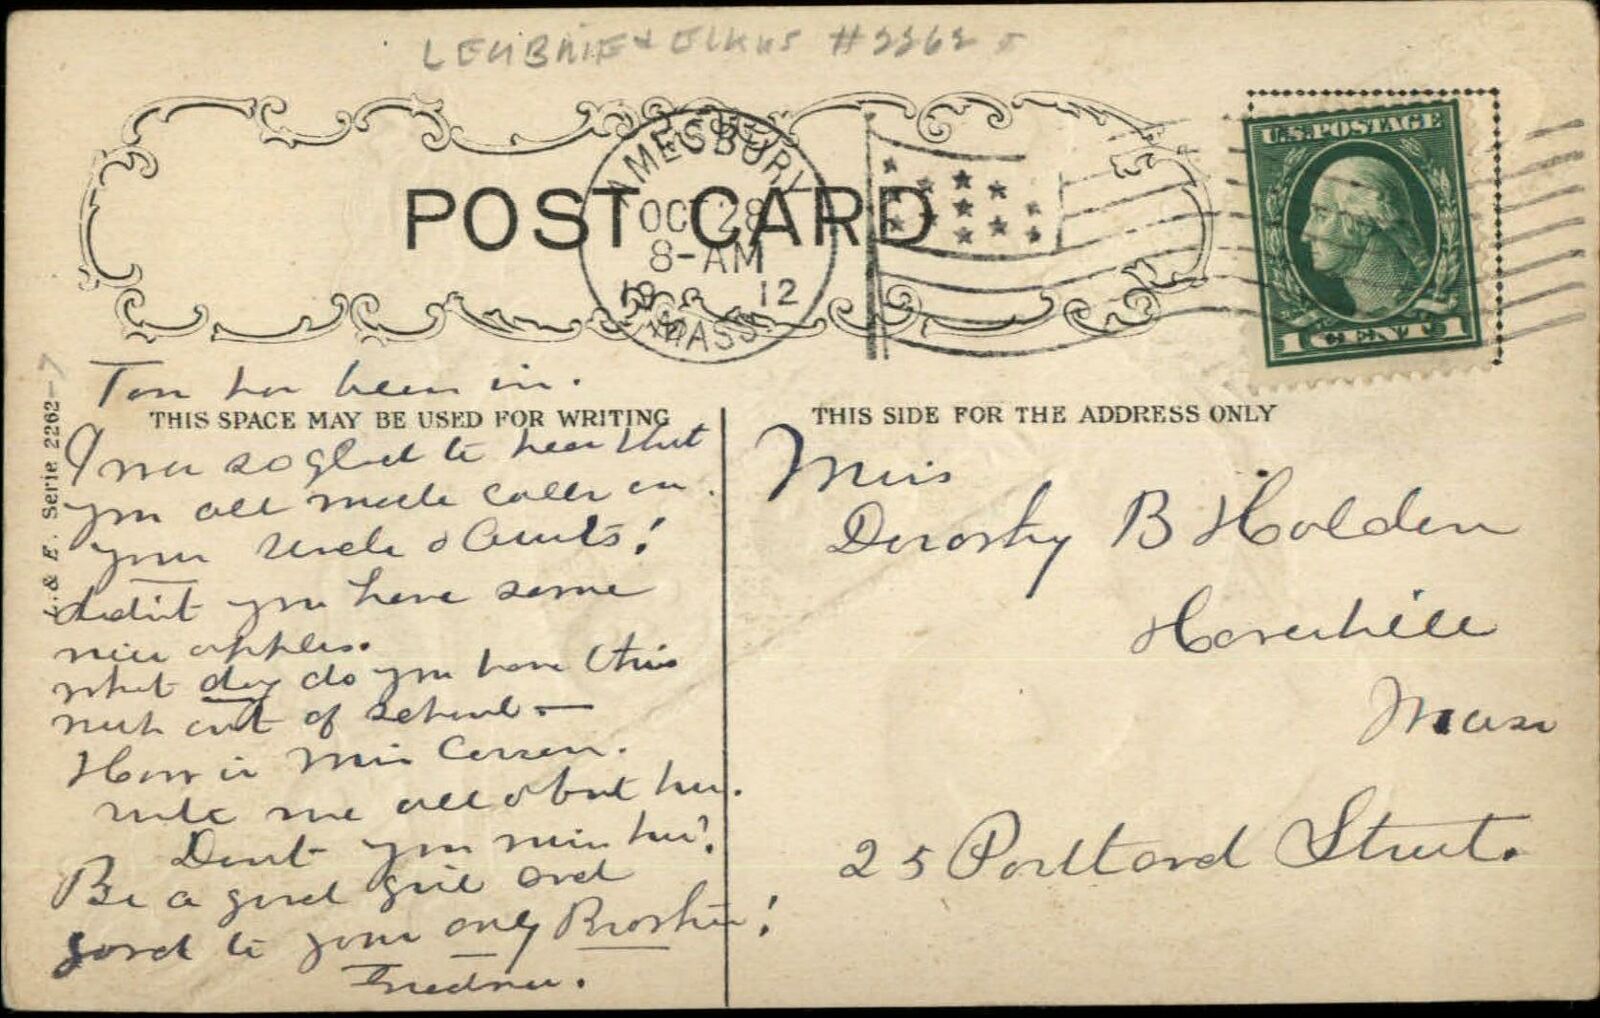 #2262
POST CARD
AMESBURY
OCT 28
8-AM
1912
MASS.
U.S. POSTAGE
1 CENT 1
L. & E. Serie 2262-7
Tom has been in.
THIS SPACE MAY BE USED FOR WRITING
THIS SIDE FOR THE ADDRESS ONLY
I was so glad to hear that
you all made calls on
your Uncle & Aunts!
didn't you have some
nice apples.
what day do you have this
week out of school —
How is Miss Carson.
write me all about her.
Dont you miss her?
Be a good girl and
good to your only Brother!
Miss
Dorothy B Holden
Haverhill
Mass
25 Portland Street.